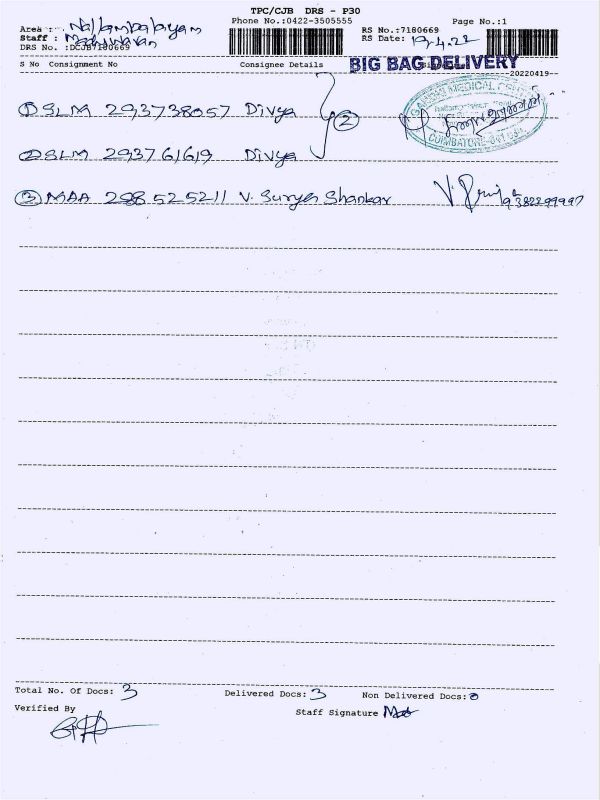 TPC/CJB DRS - P30
Phone No.:0422-3505555 Page No.:1
Area : Nallampalayam RS No.:7180669
Staff : Madhavan RS Date: 19.4.22
DRS No. :DCJB7180669
S No Consignment No Consignee Details BIG BAG DELIVERY
-20220419-
① SLM 293738057 Divya ②
② SLM 293761619 Divya
COIMBATORE
③ MAA 298525211 V. Surya Shankar 9382299997
Total No. Of Docs: 3 Delivered Docs: 3 Non Delivered Docs: 0
Verified By Staff Signature